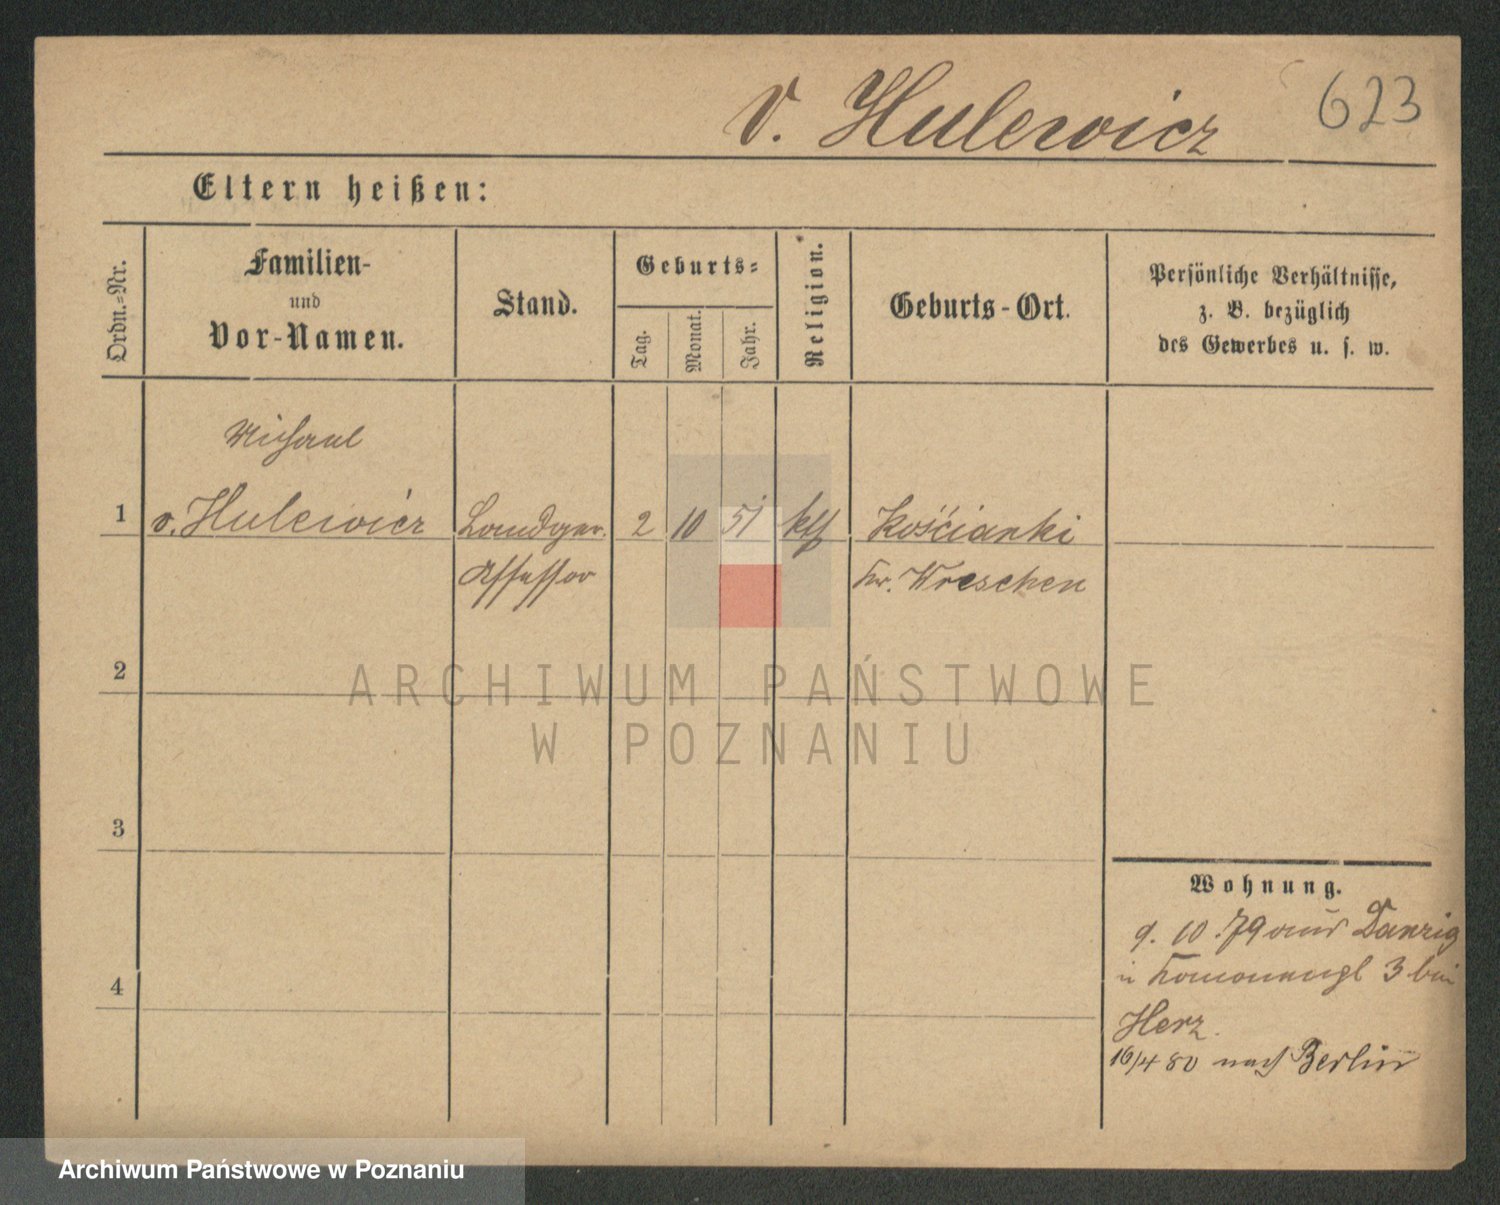 v. Hulewicz
623
Eltern heißen:
Ordn.-Nr.
Familien-
und
Vor-Namen.
Stand.
Geburts-
Tag.
Monat.
Jahr.
Religion.
Geburts-Ort.
Persönliche Verhältnisse,
z. B. bezüglich
des Gewerbes u. s. w.
Michael
1 v. Hulewicz Landger. 2 10 51 kth Kościanki
Assessor Kr. Wreschen
2
ARCHIWUM PAŃSTWOWE
W POZNANIU
3
Wohnung.
9. 10. 79 aus Danzig
4
3 bei
Herz.
16/4 80 nach Berlin
Archiwum Państwowe w Poznaniu